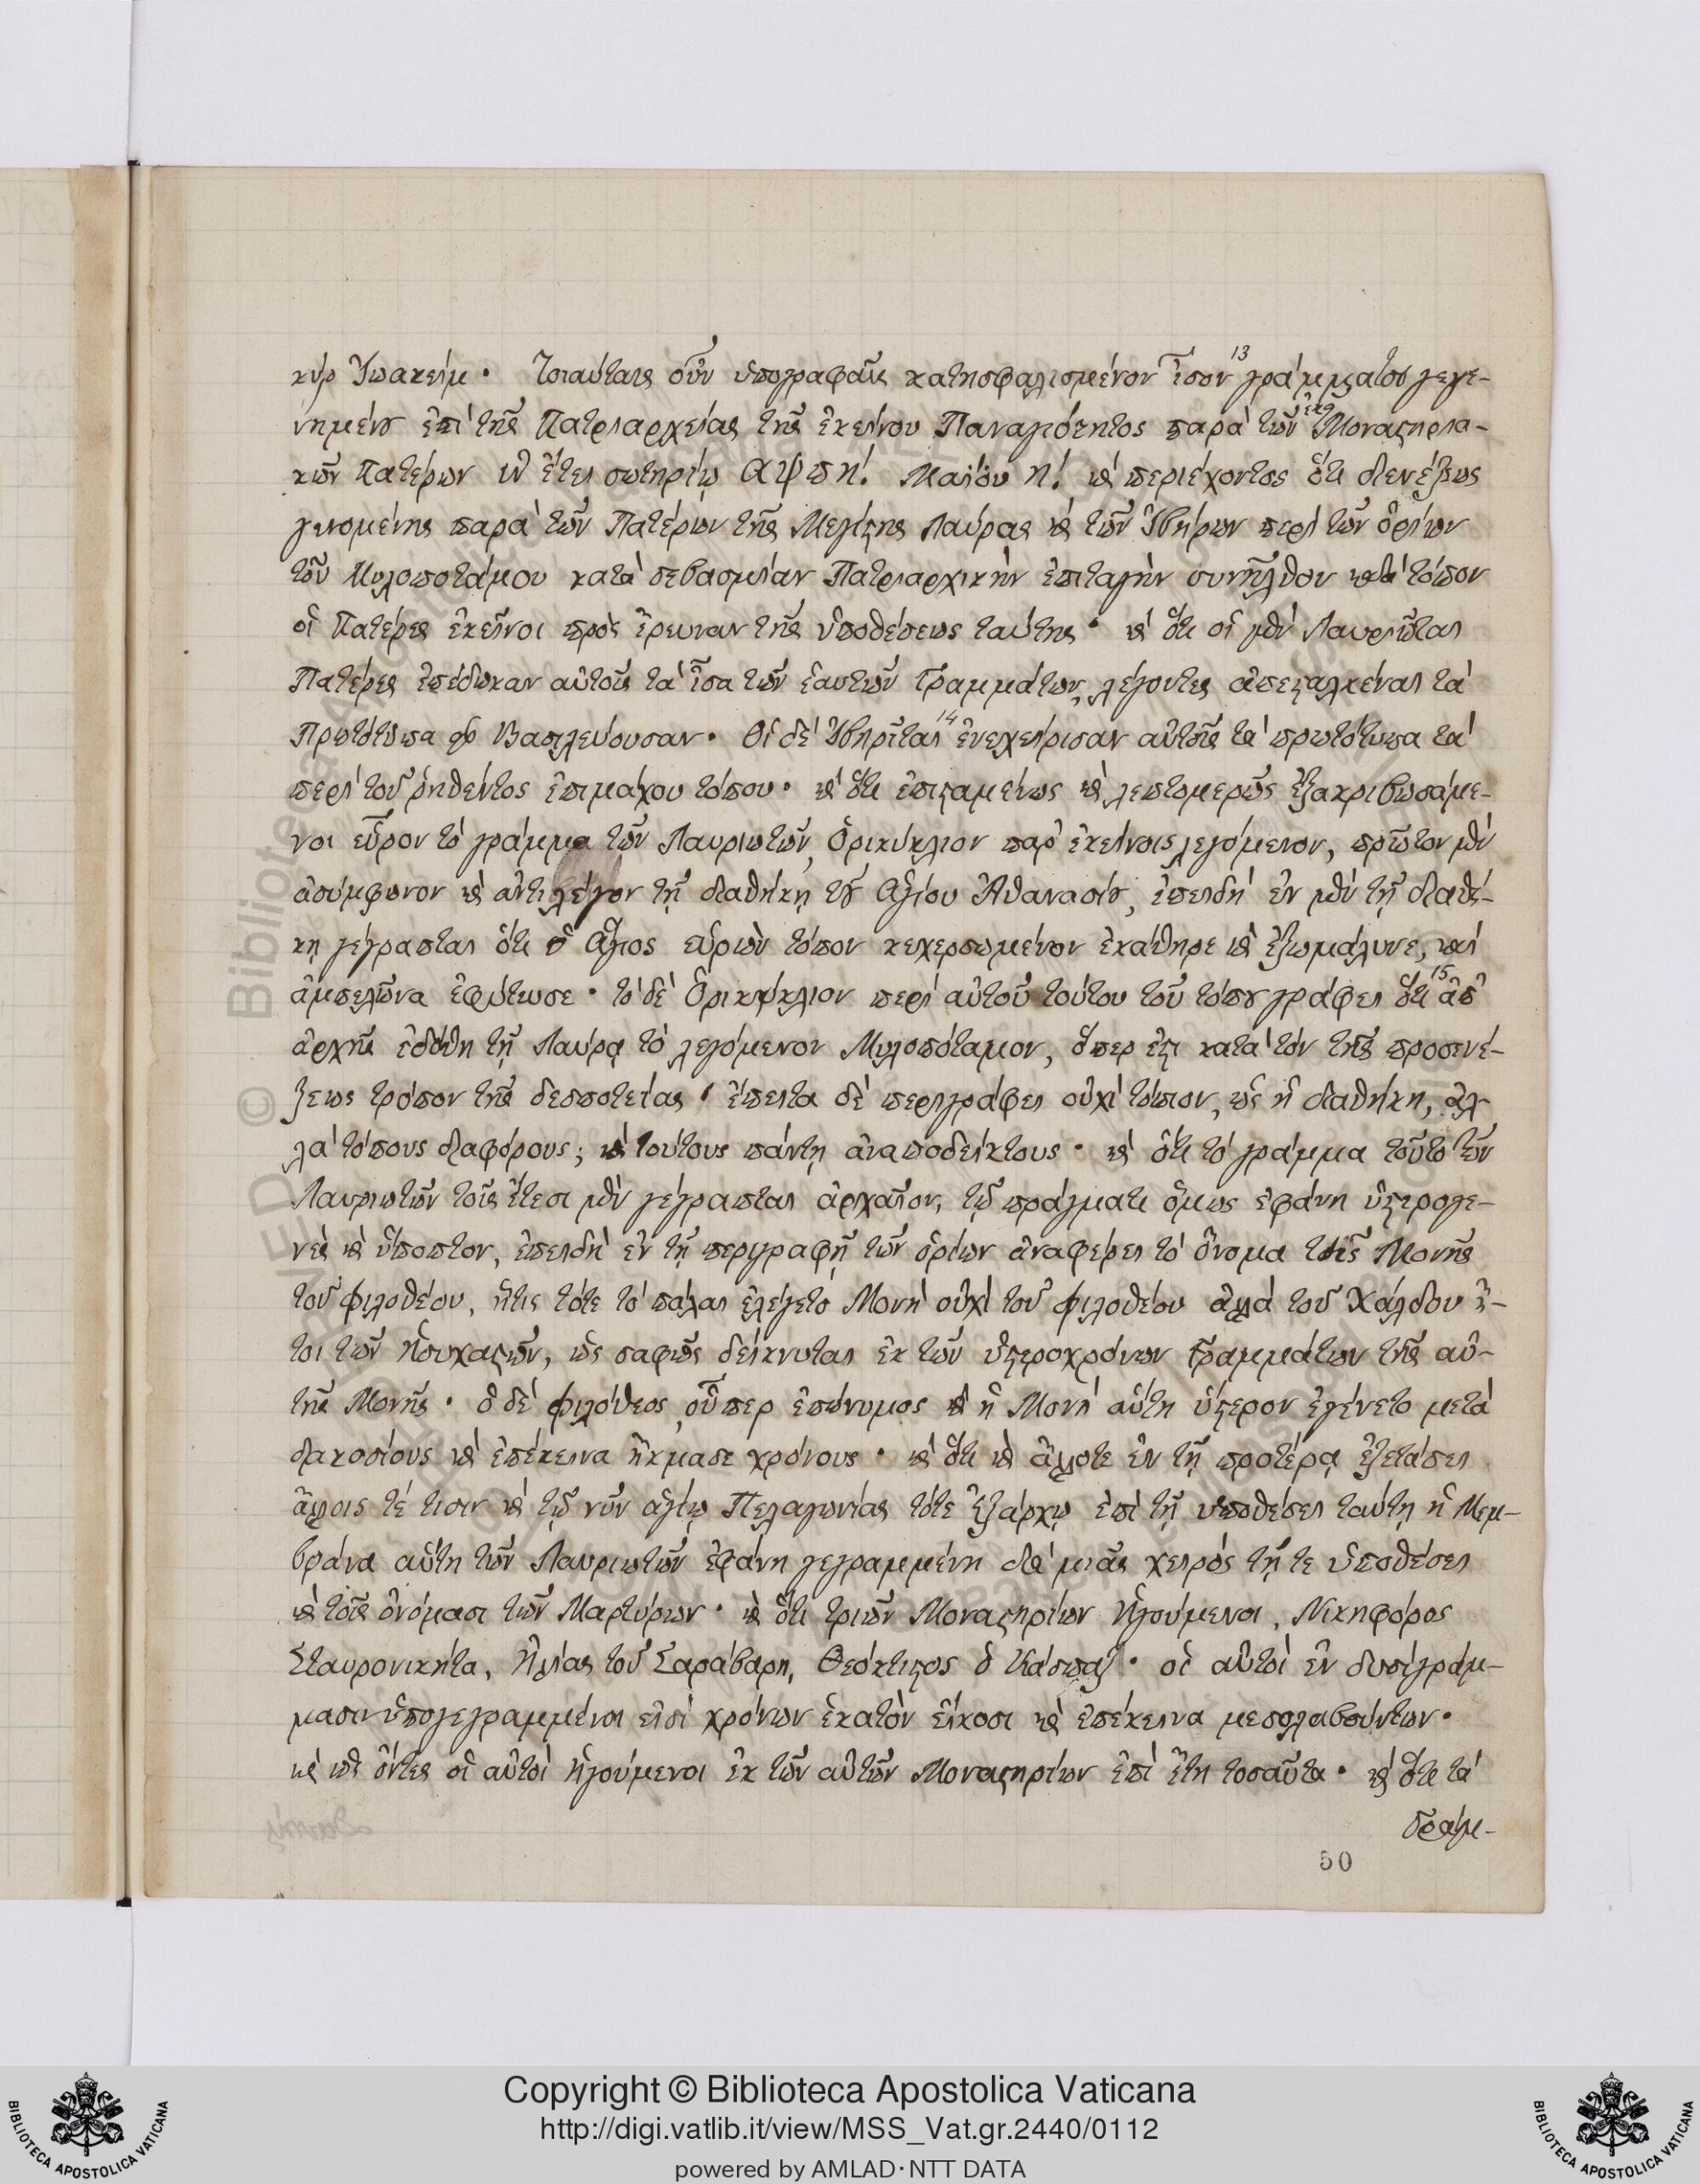 κύρ Ἰωακείμ· Τοιαύταις οὖν ὑπογραφαῖς κατησφαλισμένον ἶσον 13 γράμματος γεγε-
νημένου ἐπὶ τῆς Πατριαρχείας τῆς ἐκείνου Παναγιότητος παρὰ τῶν Μοναστηρια-
κῶν Πατέρων ἐν ἔτει σωτηρίῳ αψπη! Μαΐου η! καὶ περιέχοντος ὅτι διενέξεως
γενομένης παρὰ τῶν Πατέρων τῆς Μεγίστης Λαύρας καὶ τῶν Ἰβήρων περὶ τῶν ὁρίων
τοῦ Μυλοποτάμου κατὰ σεβασμίαν Πατριαρχικὴν ἐπιταγὴν συνῆλθον κατὰ τόπον
οἱ Πατέρες ἐκεῖνοι πρὸς ἔρευναν τῆς ὑποθέσεως ταύτης· καὶ ὅτι οἱ μὲν Λαυριῶται
Πατέρες ἐπέδωκαν αὐτοῖς τὰ ἶσα τῶν ἑαυτῶν Γραμμάτων, λέγοντες ἀπεσταλκέναι τὰ
Πρωτότυπα εἰς Βασιλεύουσαν· Οἱ δὲ Ἰβηρῖται 14 ἐνεχείρισαν αὐτοῖς τὰ πρωτότυπα τὰ
περὶ τοῦ ῥηθέντος ἐπιμάχου τόπου· καὶ ὅτι ἐπισταμένως καὶ λεπτομερῶς ἐξακριβωσάμε-
νοι εὗρον τὸ γράμμα τῶν Λαυριωτῶν, Ὁρικύκλιον παρ' ἐκείνοις λεγόμενον, πρῶτον μὲν
ἀσύμφωνον καὶ ἀντιλέγον τῇ διαθήκῃ τοῦ Ἁγίου Ἀθανασίου, ἐπειδὴ ἐν μὲν τῇ διαθή-
κῃ γέγραπται ὅτι ὁ Ἅγιος εὑρὼν τόπον κεχερσωμένον ἐκάθηρε καὶ ἐξωμάλυνε, καὶ
ἀμπελῶνα ἐφύτωσε· τὸ δὲ Ὁρικύκλιον περὶ αὐτοῦ τούτου τοῦ τόπου γράφει ὅτι 15 ἀπ'
ἀρχῆς ἐδόθη τῇ Λαύρᾳ τὸ λεγόμενον Μυλοπόταμον, ὅπερ ἐστι κατὰ τὸν τῆς προσενέ-
ξεως τρόπον τῆς δεσποτείας· ἔπειτα δὲ περιγράφει οὐχὶ τόπον, ὡς ἡ διαθήκη, ἀλ-
λὰ τόπους διαφόρους; καὶ τούτους πάντῃ ἀναποδείκτους· καὶ ὅτι τὸ γράμμα τοῦτο τῶν
Λαυριωτῶν τοῖς ἔτεσι μὲν γέγραπται ἀρχαῖον, τῷ πράγματι ὅμως ἐφάνη ὑστερογε-
νὲς καὶ ὕποπτον, ἐπειδὴ ἐν τῇ περιγραφῇ τῶν ὁρίων ἀναφέρει τὸ ὄνομα τῆς Μονῆς
τοῦ Φιλοθέου, ἥτις τότε τὸ πάλαι ἐλέγετο Μονὴ οὐχὶ τοῦ Φιλοθέου ἀλλὰ τοῦ Χάλδου ἤ-
τοι τῶν Ἡσυχαστῶν, ὡς σαφῶς δείκνυται ἐκ τῶν ὑστεροχρόνων Γραμμάτων τῆς αὐ-
τῆς Μονῆς· ὁ δὲ Φιλόθεος, οὗπερ ἐπώνυμος καὶ ἡ Μονὴ αὕτη ὕστερον ἐγένετο μετὰ
διακοσίους καὶ ἐπέκεινα ἤκμασε χρόνους· καὶ ὅτι καὶ ἄλλοτε ἐν τῇ προτέρᾳ ἐξετάσει
ἄλλοις τέ τισιν καὶ τῷ νῦν ἁγίῳ Πελαγωνίας τότε Ἐξάρχῳ ἐπὶ τῇ ὑποθέσει ταύτῃ ἡ Μεμ-
βράνα αὕτη τῶν Λαυριωτῶν ἐφάνη γεγραμμένη διὰ μιᾶς χειρὸς τῇ τε ὑποθέσει
καὶ τοῖς ὀνόμασι τῶν Μαρτύρων· καὶ ὅτι τριῶν Μοναστηρίων Ἡγούμενοι, Νικηφόρος
Σταυρονικήτα, Ἠλίας τοῦ Σαράβαρη, Θεόκτιστος ὁ Κάσπαξ· οἱ αὐτοὶ ἐν δυσὶ γράμ-
μασιν ὑπογεγραμμένοι εἰσὶ χρόνων ἑκατὸν εἴκοσι καὶ ἐπέκεινα μεσολαβούντων·
καὶ ὄντες οἱ αὐτοὶ Ἡγούμενοι ἐκ τῶν αὐτῶν Μοναστηρίων ἐπὶ ἔτη τοσαῦτα· καὶ ὅτι τὰ
Γράμ-
50
© Biblioteca Apostolica Vaticana
Copyright © Biblioteca Apostolica Vaticana
http://digi.vatlib.it/view/MSS_Vat.gr.2440/0112
powered by AMLAD·NTT DATA
BIBLIOTECA APOSTOLICA VATICANA
BIBLIOTECA APOSTOLICA VATICANA